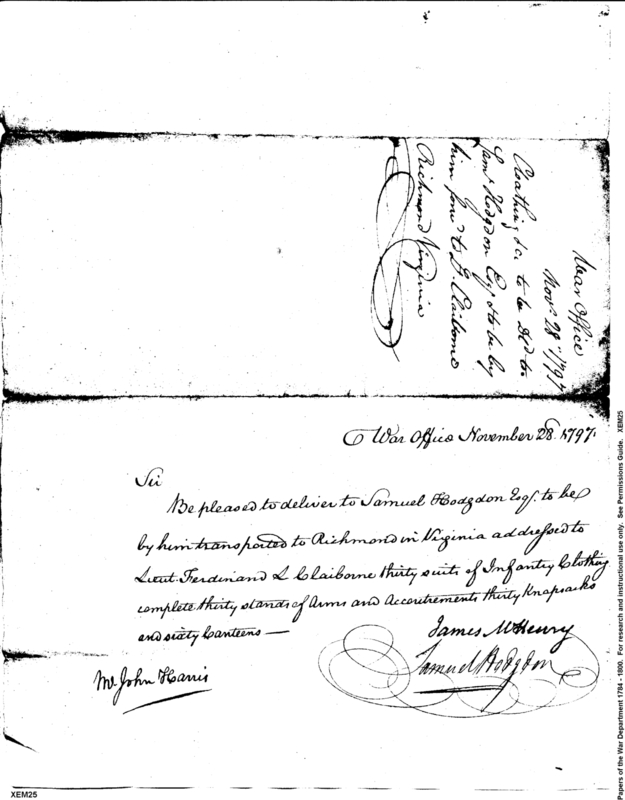 War Office
Nov. 28th 1797
Cloathing &c. to be Dld to
Saml Hodgdon Esq. to be by
him forwd to L. Claiborne
Richmond Virginia
War Office November 28. 1797.
Sir
Be pleased to deliver to Samuel Hodgdon Esqr. to be
by him transported to Richmond in Virginia addressed to
Lieut. Ferdinand L Claiborne thirty suits of Infantry Clothing
complete thirty stands of Arms and Accoutrements thirty Knapsacks
and sixty Canteens —
James McHenry
Samuel Hodgdon
Mr John Harris
XEM25
Papers of the War Department 1784 - 1800. For research and instructional use only. See Permissions Guide. XEM25